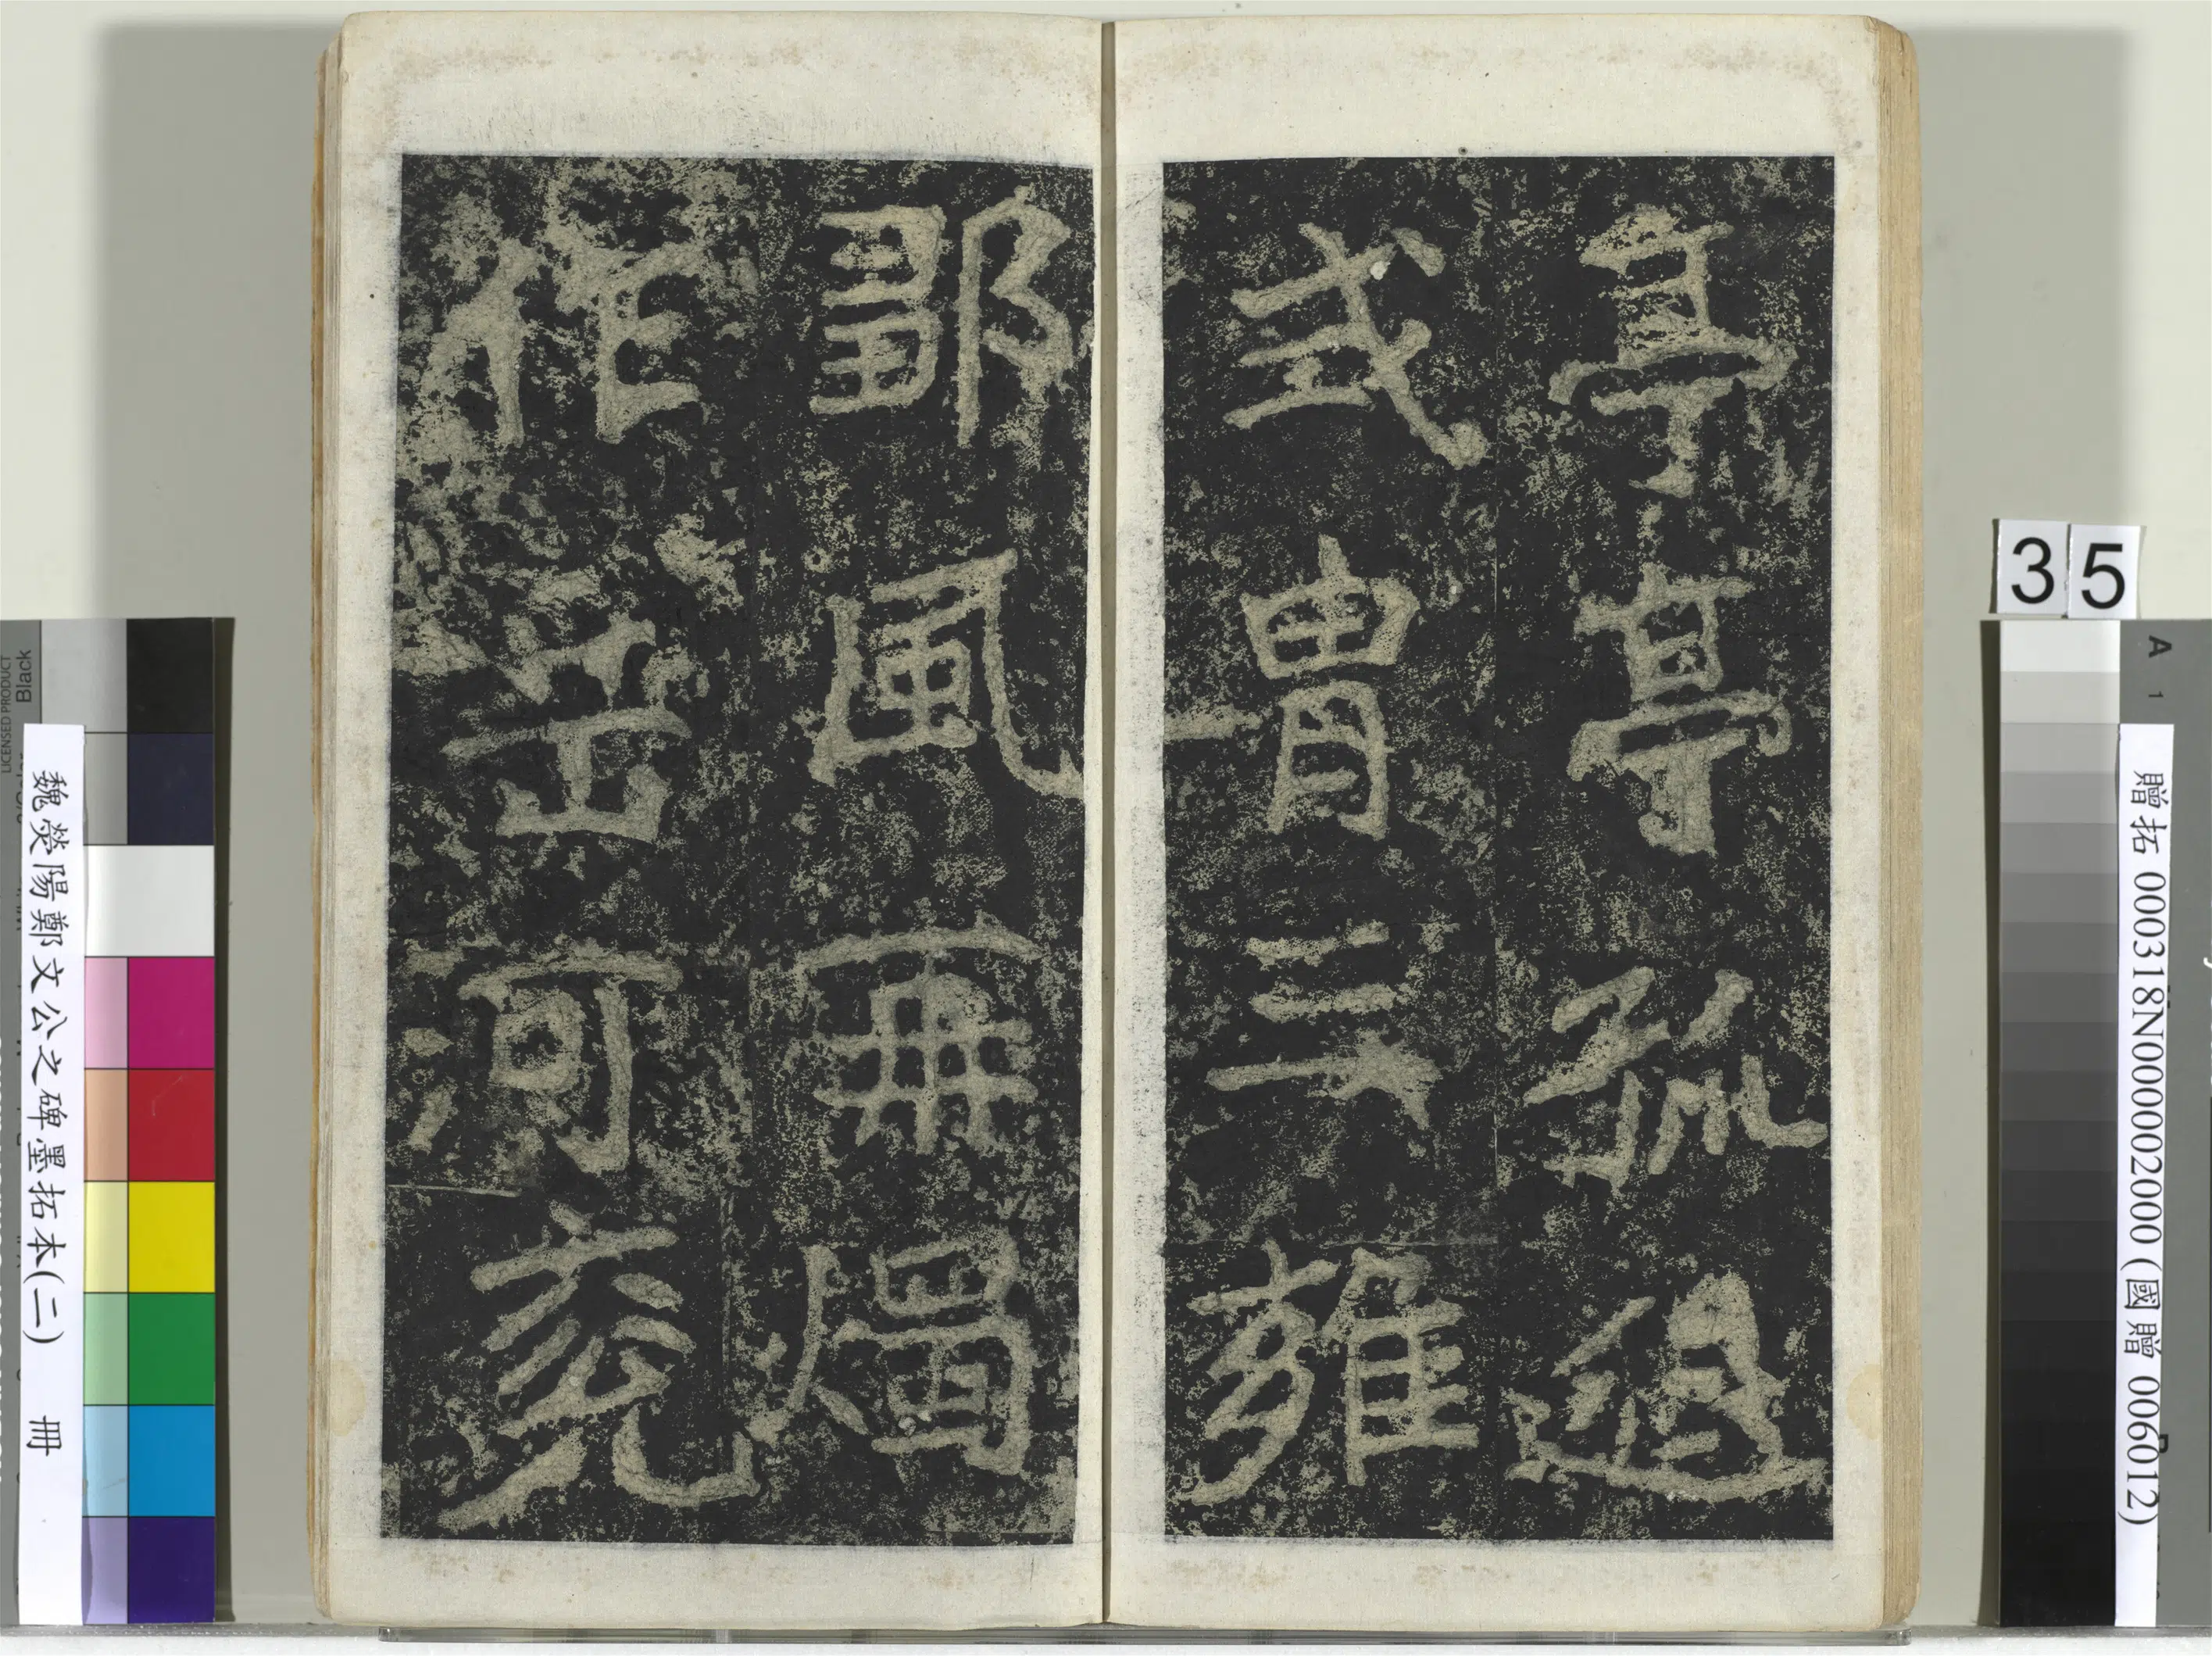 亭亭孤逈
式胄三雍
鄒風再燭
作岳河兗
35
贈拓 000318N000002000 (國贈 006012)
魏熒陽鄭文公之碑墨拓本(二) 冊
LICENSED PRODUCT
Black
A 1